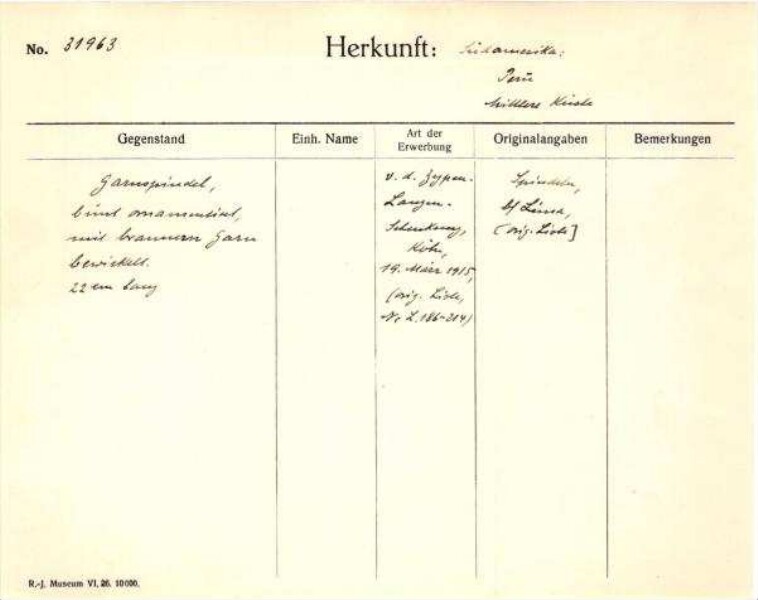 No. 31963
Herkunft: Südamerika:
Peru
Mittlere Küste
Gegenstand
Einh. Name
Art der
Erwerbung
Originalangaben
Bemerkungen
Garnspindel,
bunt ornamentiert,
mit braunem Garn
bewickelt.
22 cm lang
v. d. Zypen-
Langen-
Schenkung,
Köln,
19. März 1915,
(orig. Liste,
No L. 186-214)
Spindeln,
bf Lima,
[orig. Liste]
R.-J. Museum VI, 26. 10000.